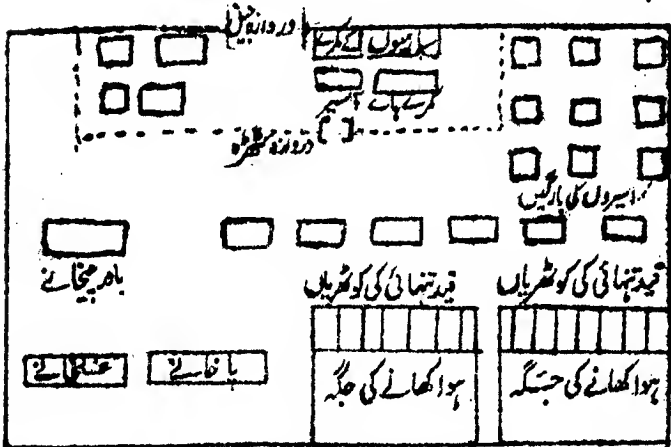 دروازہ جیل
سپاہیوں کے کمرے
کمرے ہائے آفسیر
دروازہ کٹہرہ
اسیروں کی بارکیں
باورچیخانے
قید تنہائی کی کوٹھریاں
قید تنہائی کی کوٹھریاں
غسلخانے
پاخانے
ہوا کھانے کی جگہ
ہوا کھانے کی جگہ